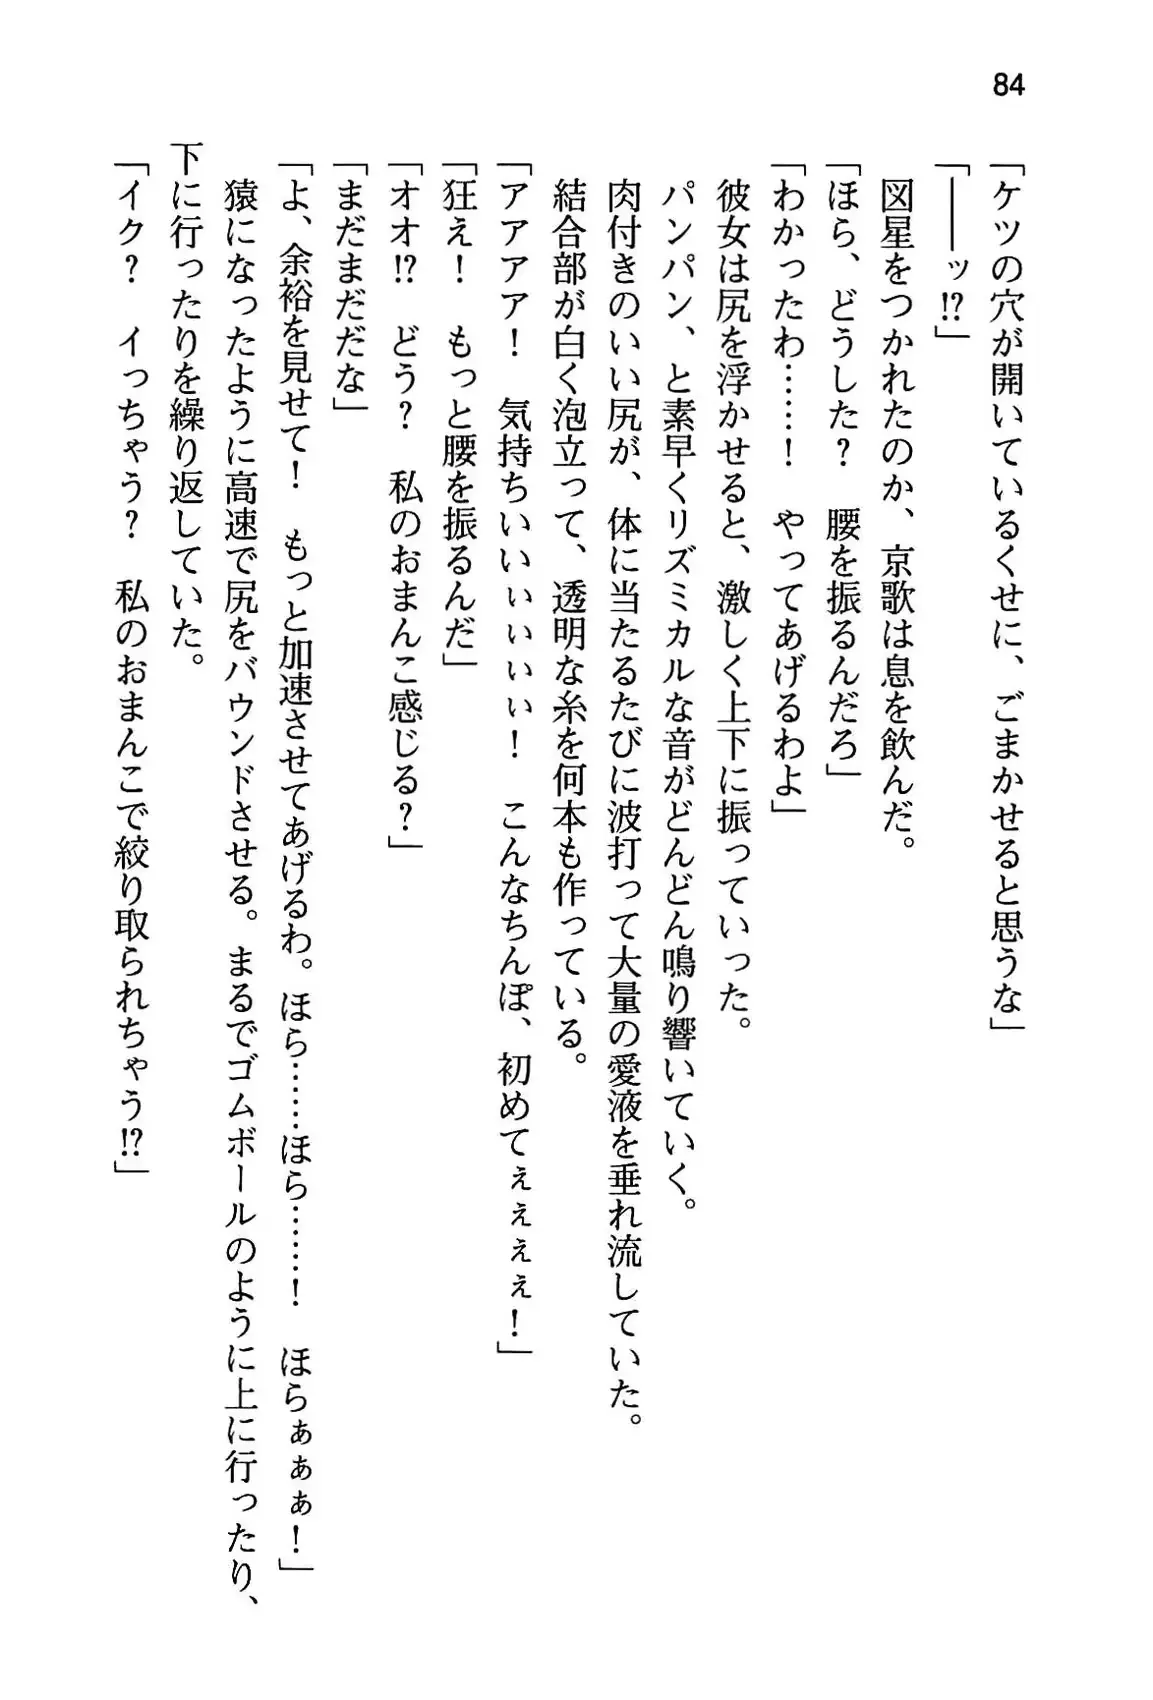 84
「ケツの穴が開いているくせに、ごまかせると思うな」
「――ッ!?」
図星をつかれたのか、京歌は息を飲んだ。
「ほら、どうした？　腰を振るんだろ」
「わかったわ……！　やってあげるわよ」
彼女は尻を浮かせると、激しく上下に振っていった。
パンパン、と素早くリズミカルな音がどんどん鳴り響いていく。
肉付きのいい尻が、体に当たるたびに波打って大量の愛液を垂れ流していた。
結合部が白く泡立って、透明な糸を何本も作っている。
「アアアア！　気持ちいいぃぃぃぃ！　こんなちんぽ、初めてぇぇぇぇ！」
「狂え！　もっと腰を振るんだ」
「オオ!?　どう？　私のおまんこ感じる？」
「まだまだだな」
「よ、余裕を見せて！　もっと加速させてあげるわ。ほら……ほら……！　ほらぁぁぁ！」
猿になったように高速で尻をバウンドさせる。まるでゴムボールのように上に行ったり、
下に行ったりを繰り返していた。
「イク？　イっちゃう？　私のおまんこで絞り取られちゃう!?」